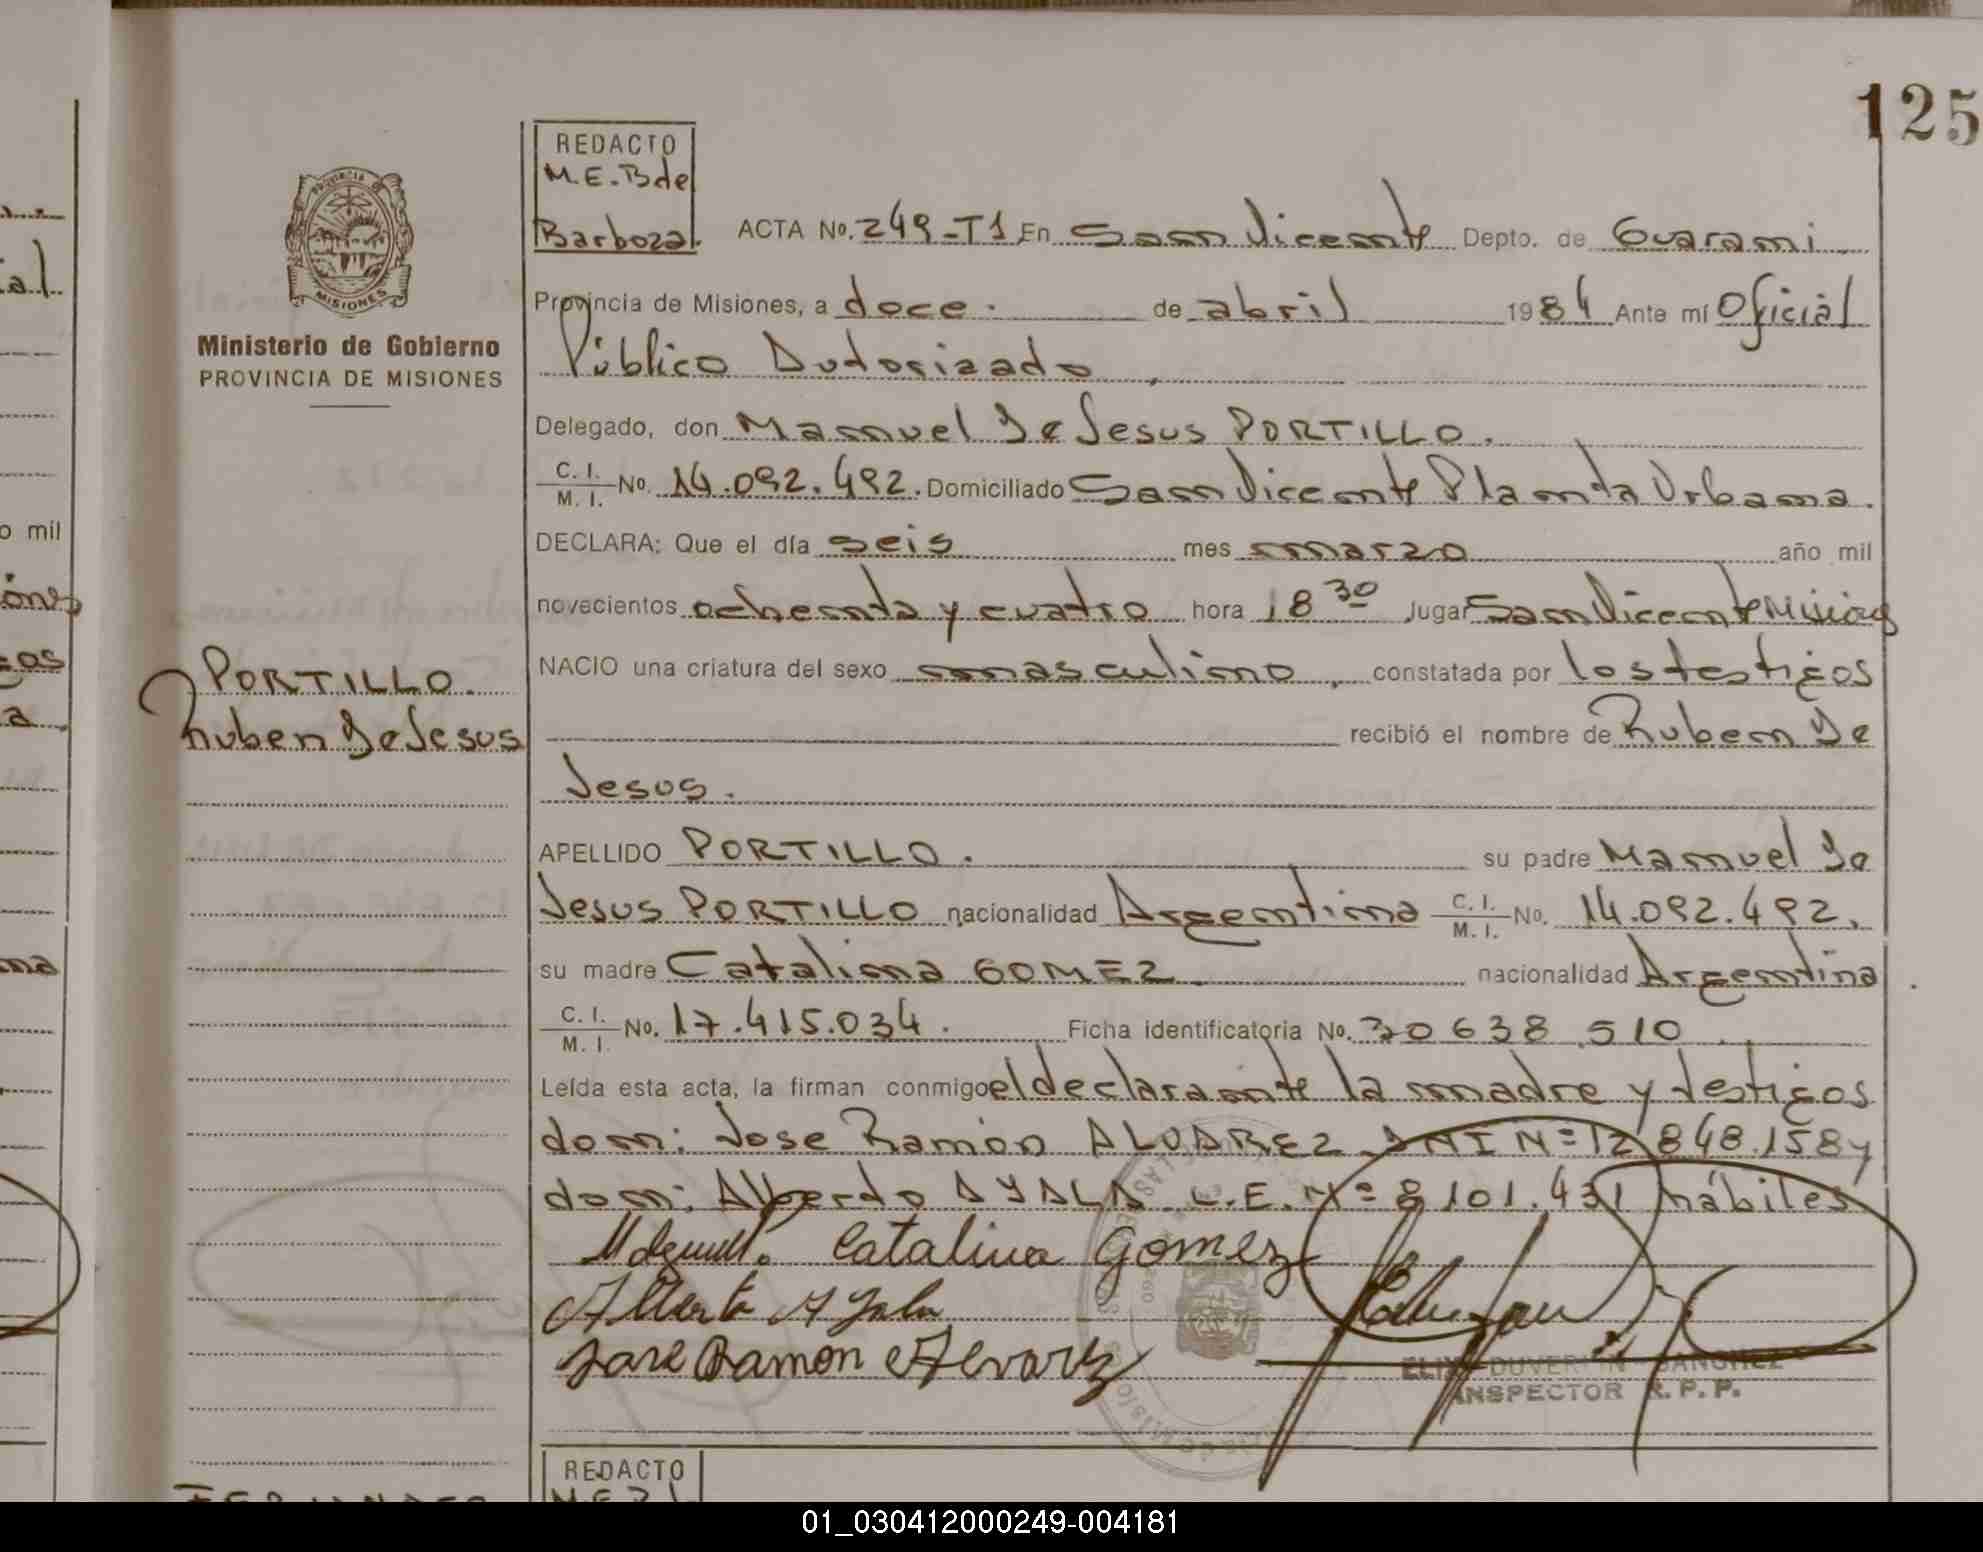 125
REDACTO
M.E.B de
Barboza.
ACTA No. 249-T1 En San Vicente Depto. de Guarani
Provincia de Misiones, a doce. de abril 1984 Ante mí Oficial
Público Autorizado,
Delegado, don Manuel De Jesus PORTILLO.
C. I.
M. I. No. 14.092.492. Domiciliado San Vicente Planta Urbana.
DECLARA: Que el día seis mes marzo año mil
novecientos ochenta y cuatro hora 18 30 lugar San Vicente Misiones
NACIO una criatura del sexo masculino, constatada por los testigos
recibió el nombre de Ruben De
Jesus.
APELLIDO PORTILLO. su padre Manuel De
Jesus PORTILLO nacionalidad Argentina C. I. M. I. No. 14.092.492.
su madre Catalina GOMEZ. nacionalidad Argentina.
C. I.
M. I. No. 17.415.034. Ficha identificatoria No. 30638.510.
Leída esta acta, la firman conmigo el declarante la madre y testigos
don: Jose Ramón ALVAREZ DNI Nº 12.848.158 y
don: Alberto AYALA L.E. Nº 8101.431 hábiles
Catalina Gomez
Alberto Ayala
Jose Ramon Alvarez
DUVER SANCHEZ
INSPECTOR R. P. P.
PROVINCIA DE
MISIONES
Ministerio de Gobierno
PROVINCIA DE MISIONES
PORTILLO.
Ruben De Jesus
REDACTO
o mil
01_030412000249-004181